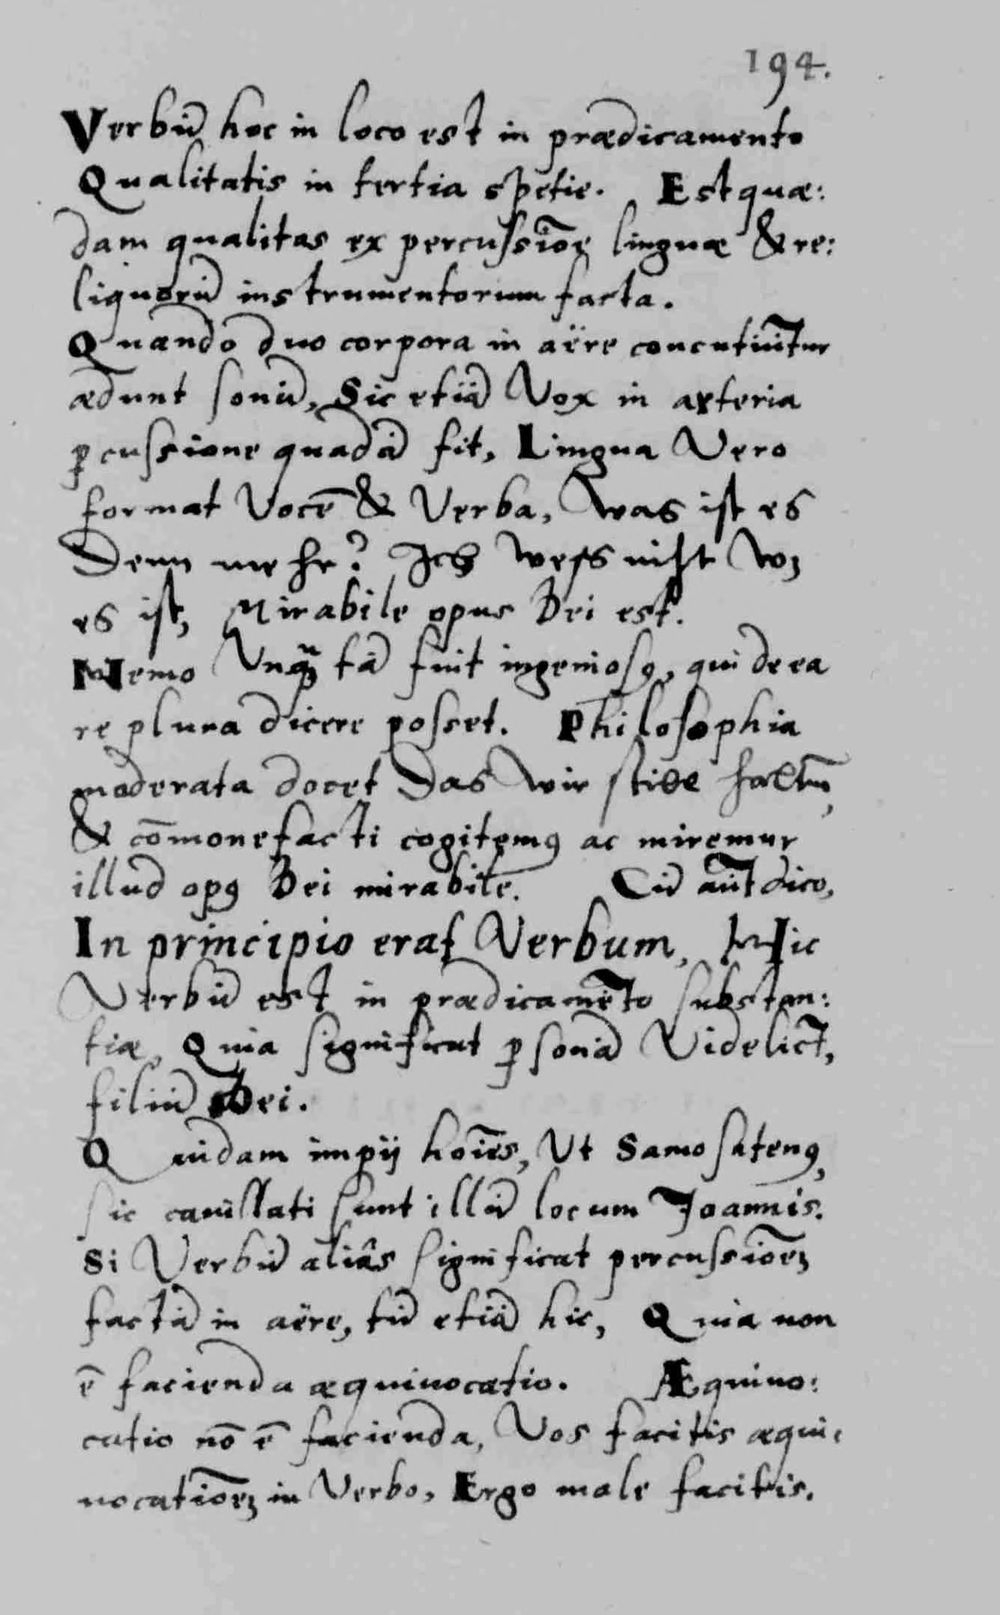 194.
Verbū hoc in loco est in prædicamento
Qualitatis in tertia spetie. Est quæ:
dam qualitas ex percussiōe linguæ & re:
liquorū instrumentorum facta.
Quando duo corpora in aëre concutiūtur
ædunt sonū, Sic etiā Vox in arteria
ꝑcussione quadā fit, Lingua Vero
format Vocē & Verba, Was ist es
Denn mehr? Ich weſs nicht wz
es ist, Mirabile opus Dei est.
Nemo Unqꝫ tā fuit ingeniosꝰ, qui de ea
re plura dicere posset. Philosophia
moderata docet Das wir stille haltē,
& cōmonefacti cogitemꝰ ac miremur
illud opꝰ Dei mirabile. Cū aūt dico,
In principio erat Verbum, Hic
Verbū est in prædicamēto substan:
tiæ, Quia significat ꝑsonā Videlict,
filiū Dei.
Quidam impij hoīes, Ut Samosatenꝰ,
sic cauillati sunt illū locum Joannis.
Si Verbū aliâs significat percussiōeꝫ
factā in aëre, tū etiā hic, Quia non
ē facienda æquiuocatio. Æquiuo:
catio nō ē facienda, Vos facitis æqui:
uocatiōeꝫ in Verbo, Ergo male facitis.